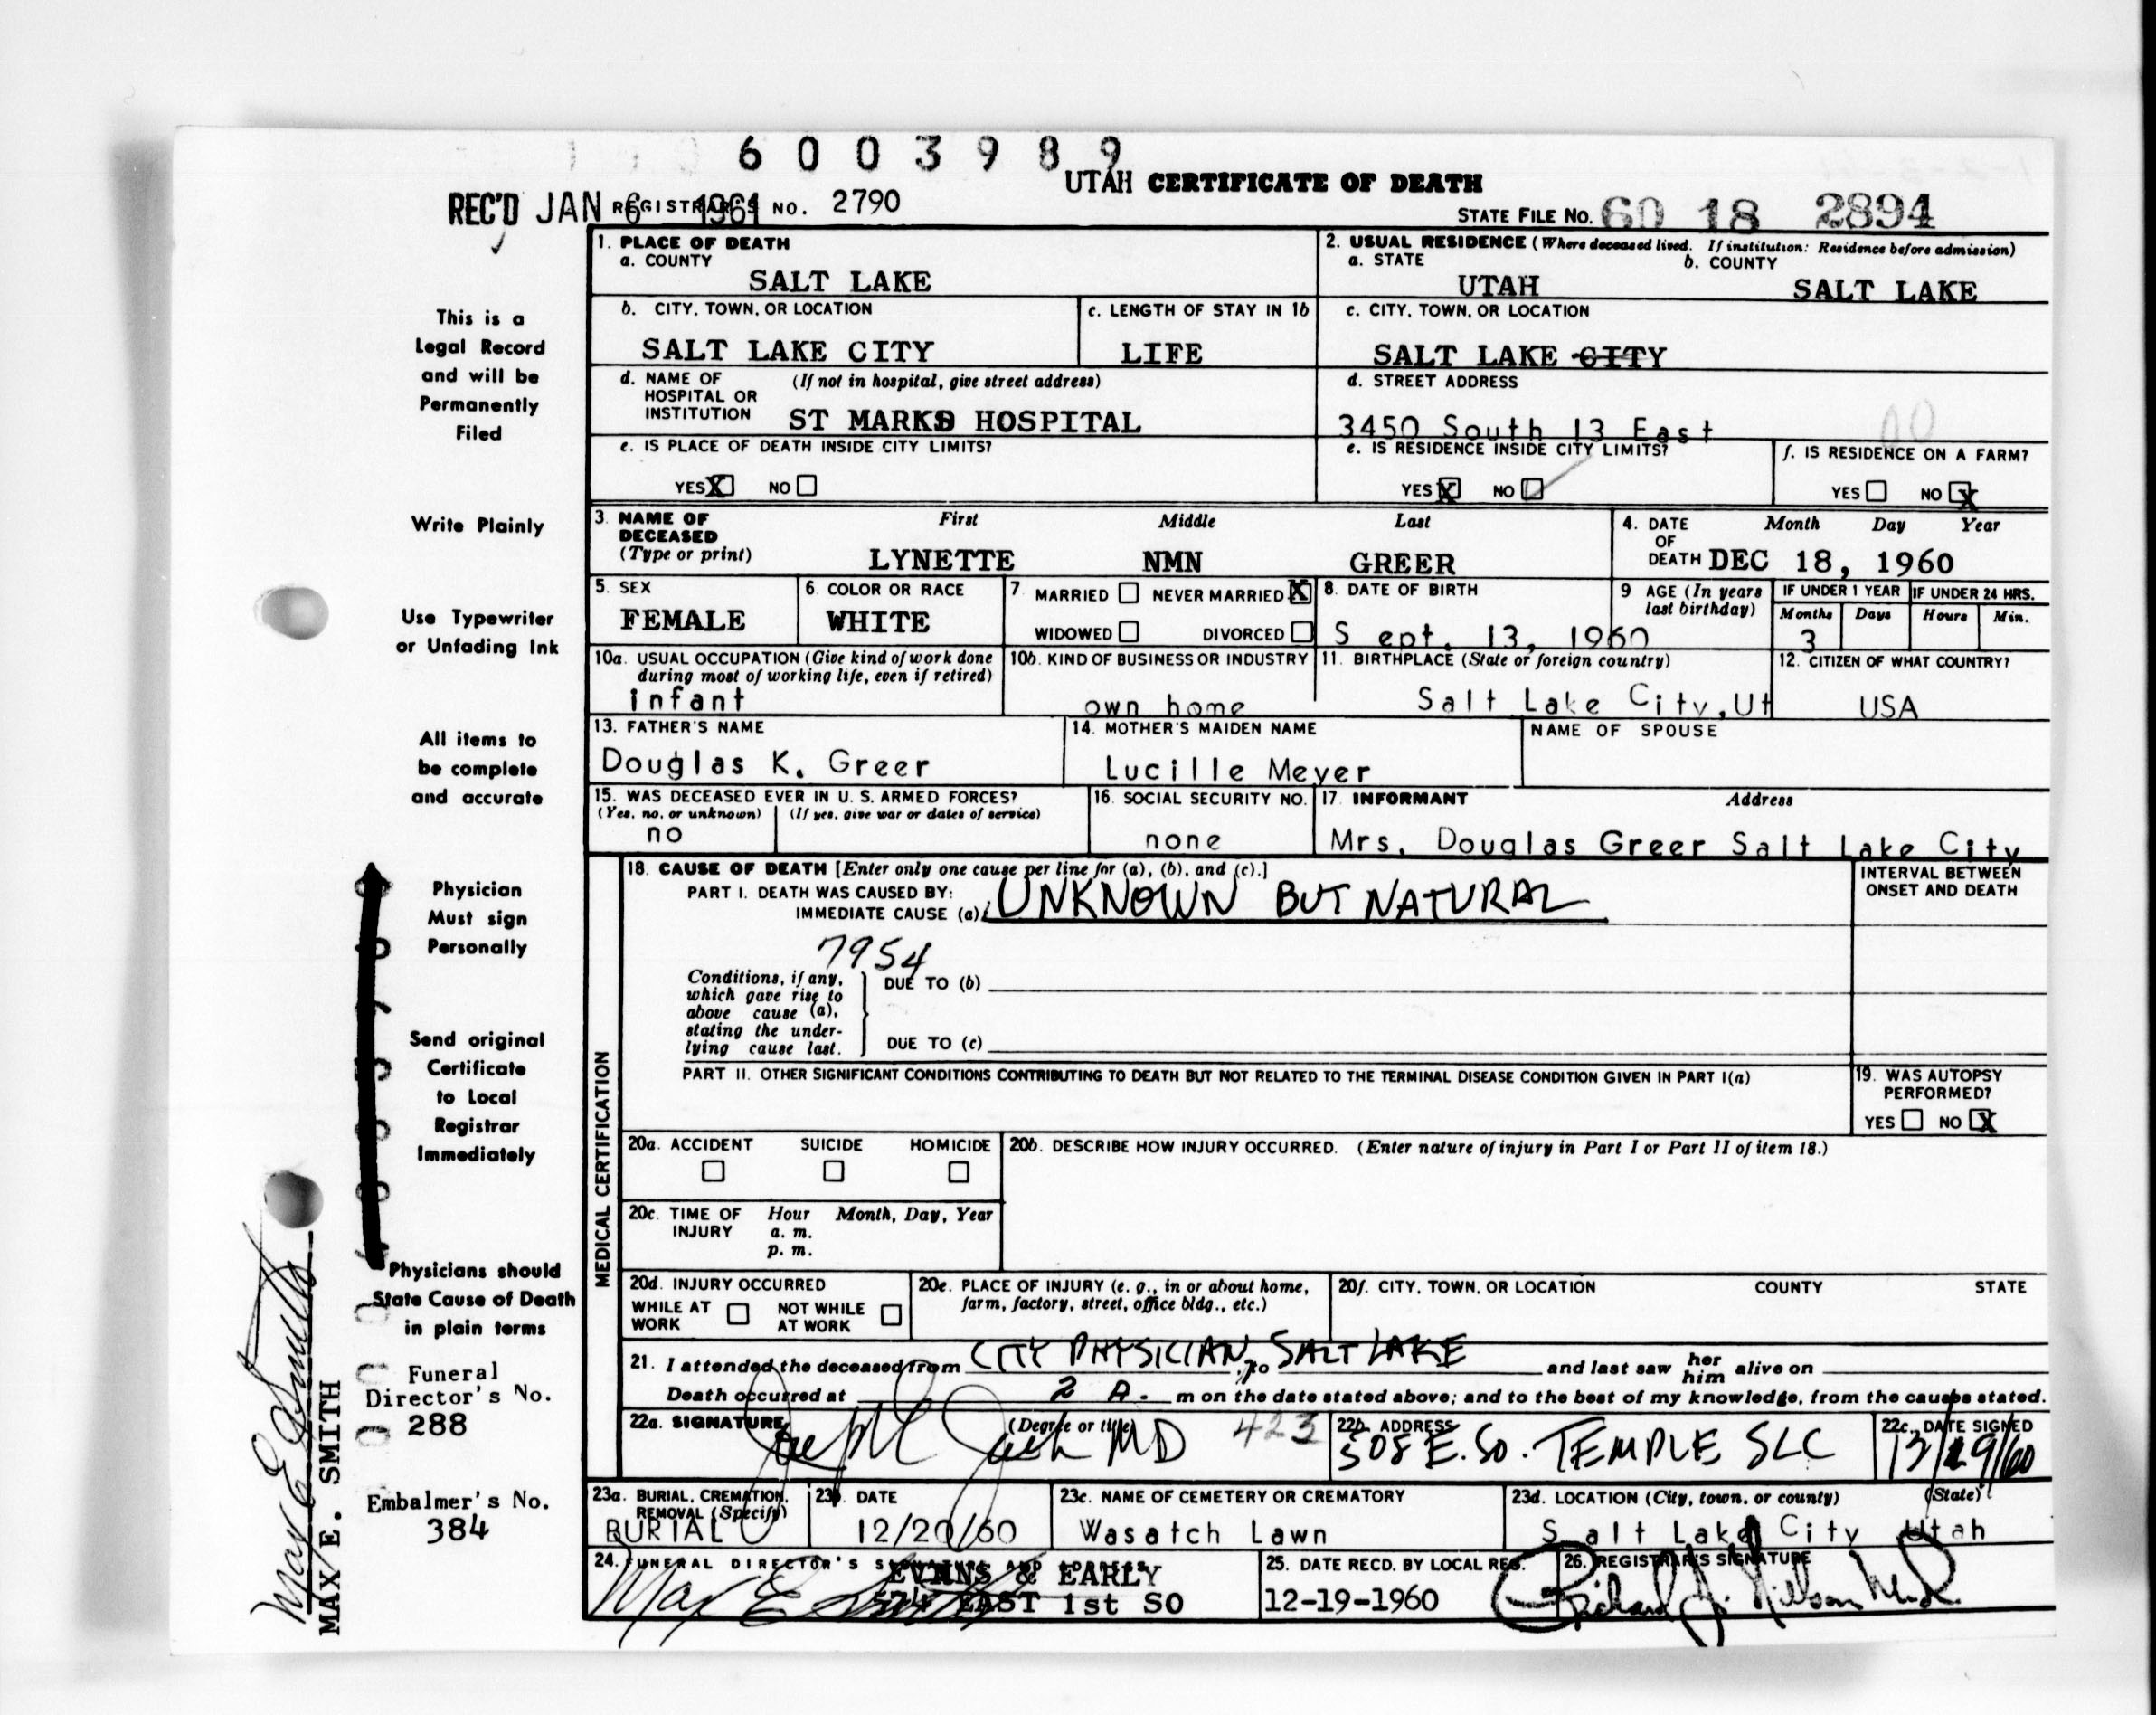 6 0 0 3 9 8 9
UTAH CERTIFICATE OF DEATH
REC'D JAN 6 1961 REGISTRAR'S NO. 2790
STATE FILE NO. 60 18 2894
1. PLACE OF DEATH
a. COUNTY
SALT LAKE
2. USUAL RESIDENCE (Where deceased lived. If institution: Residence before admission)
a. STATE b. COUNTY
UTAH SALT LAKE
b. CITY, TOWN, OR LOCATION
SALT LAKE CITY
c. LENGTH OF STAY IN 1b
LIFE
c. CITY, TOWN, OR LOCATION
SALT LAKE CITY
d. NAME OF (If not in hospital, give street address)
HOSPITAL OR
INSTITUTION ST MARKS HOSPITAL
d. STREET ADDRESS
3450 South 13 East
00
e. IS PLACE OF DEATH INSIDE CITY LIMITS?
YES X NO
e. IS RESIDENCE INSIDE CITY LIMITS?
YES X NO
f. IS RESIDENCE ON A FARM?
YES NO X
3. NAME OF First Middle Last
DECEASED
(Type or print) LYNETTE NMN GREER
4. DATE Month Day Year
OF
DEATH DEC 18, 1960
5. SEX
FEMALE
6. COLOR OR RACE
WHITE
7 MARRIED NEVER MARRIED X
WIDOWED DIVORCED
8. DATE OF BIRTH
Sept. 13, 1960
9 AGE (In years
last birthday)
IF UNDER 1 YEAR IF UNDER 24 HRS.
Months Days Hours Min.
3
10a. USUAL OCCUPATION (Give kind of work done
during most of working life, even if retired)
infant
10b. KIND OF BUSINESS OR INDUSTRY
own home
11. BIRTHPLACE (State or foreign country)
Salt Lake City, Ut
12. CITIZEN OF WHAT COUNTRY?
USA
13. FATHER'S NAME
Douglas K. Greer
14. MOTHER'S MAIDEN NAME
Lucille Meyer
NAME OF SPOUSE
15. WAS DECEASED EVER IN U. S. ARMED FORCES?
(Yes, no, or unknown) (If yes, give war or dates of service)
no
16. SOCIAL SECURITY NO.
none
17. INFORMANT Address
Mrs. Douglas Greer Salt Lake City
MEDICAL CERTIFICATION
18. CAUSE OF DEATH [Enter only one cause per line for (a), (b), and (c).]
PART I. DEATH WAS CAUSED BY:
IMMEDIATE CAUSE (a) UNKNOWN BUT NATURAL
INTERVAL BETWEEN
ONSET AND DEATH
7954
Conditions, if any,
which gave rise to
above cause (a),
stating the under-
lying cause last.
DUE TO (b)
DUE TO (c)
PART II. OTHER SIGNIFICANT CONDITIONS CONTRIBUTING TO DEATH BUT NOT RELATED TO THE TERMINAL DISEASE CONDITION GIVEN IN PART I(a)
19. WAS AUTOPSY
PERFORMED?
YES NO X
20a. ACCIDENT SUICIDE HOMICIDE
20b. DESCRIBE HOW INJURY OCCURRED. (Enter nature of injury in Part I or Part II of item 18.)
20c. TIME OF Hour Month, Day, Year
INJURY a. m.
p. m.
20d. INJURY OCCURRED
WHILE AT NOT WHILE
WORK AT WORK
20e. PLACE OF INJURY (e. g., in or about home,
farm, factory, street, office bldg., etc.)
20f. CITY, TOWN, OR LOCATION COUNTY STATE
21. I attended the deceased from CITY PHYSICIAN, to SALT LAKE and last saw her him alive on
Death occurred at 2 A. m on the date stated above; and to the best of my knowledge, from the causes stated.
22a. SIGNATURE (Degree or title)
MD 423
22b. ADDRESS
508 E. SO. TEMPLE SLC
22c. DATE SIGNED
23a. BURIAL, CREMATION,
REMOVAL (Specify)
BURIAL
23b. DATE
12/20/60
23c. NAME OF CEMETERY OR CREMATORY
Wasatch Lawn
23d. LOCATION (City, town, or county) (State)
Salt Lake City Utah
24. FUNERAL DIRECTOR'S SIGNATURE AND ADDRESS
EVANS & EARLY
574 EAST 1st SO
Max E. Smith
25. DATE RECD. BY LOCAL REG.
12-19-1960
26. REGISTRAR'S SIGNATURE
This is a
Legal Record
and will be
Permanently
Filed
Write Plainly
Use Typewriter
or Unfading Ink
All items to
be complete
and accurate
Physician
Must sign
Personally
Send original
Certificate
to Local
Registrar
Immediately
Physicians should
State Cause of Death
in plain terms
Funeral
Director's No.
288
Embalmer's No.
384
Max E. Smith
MAX E. SMITH